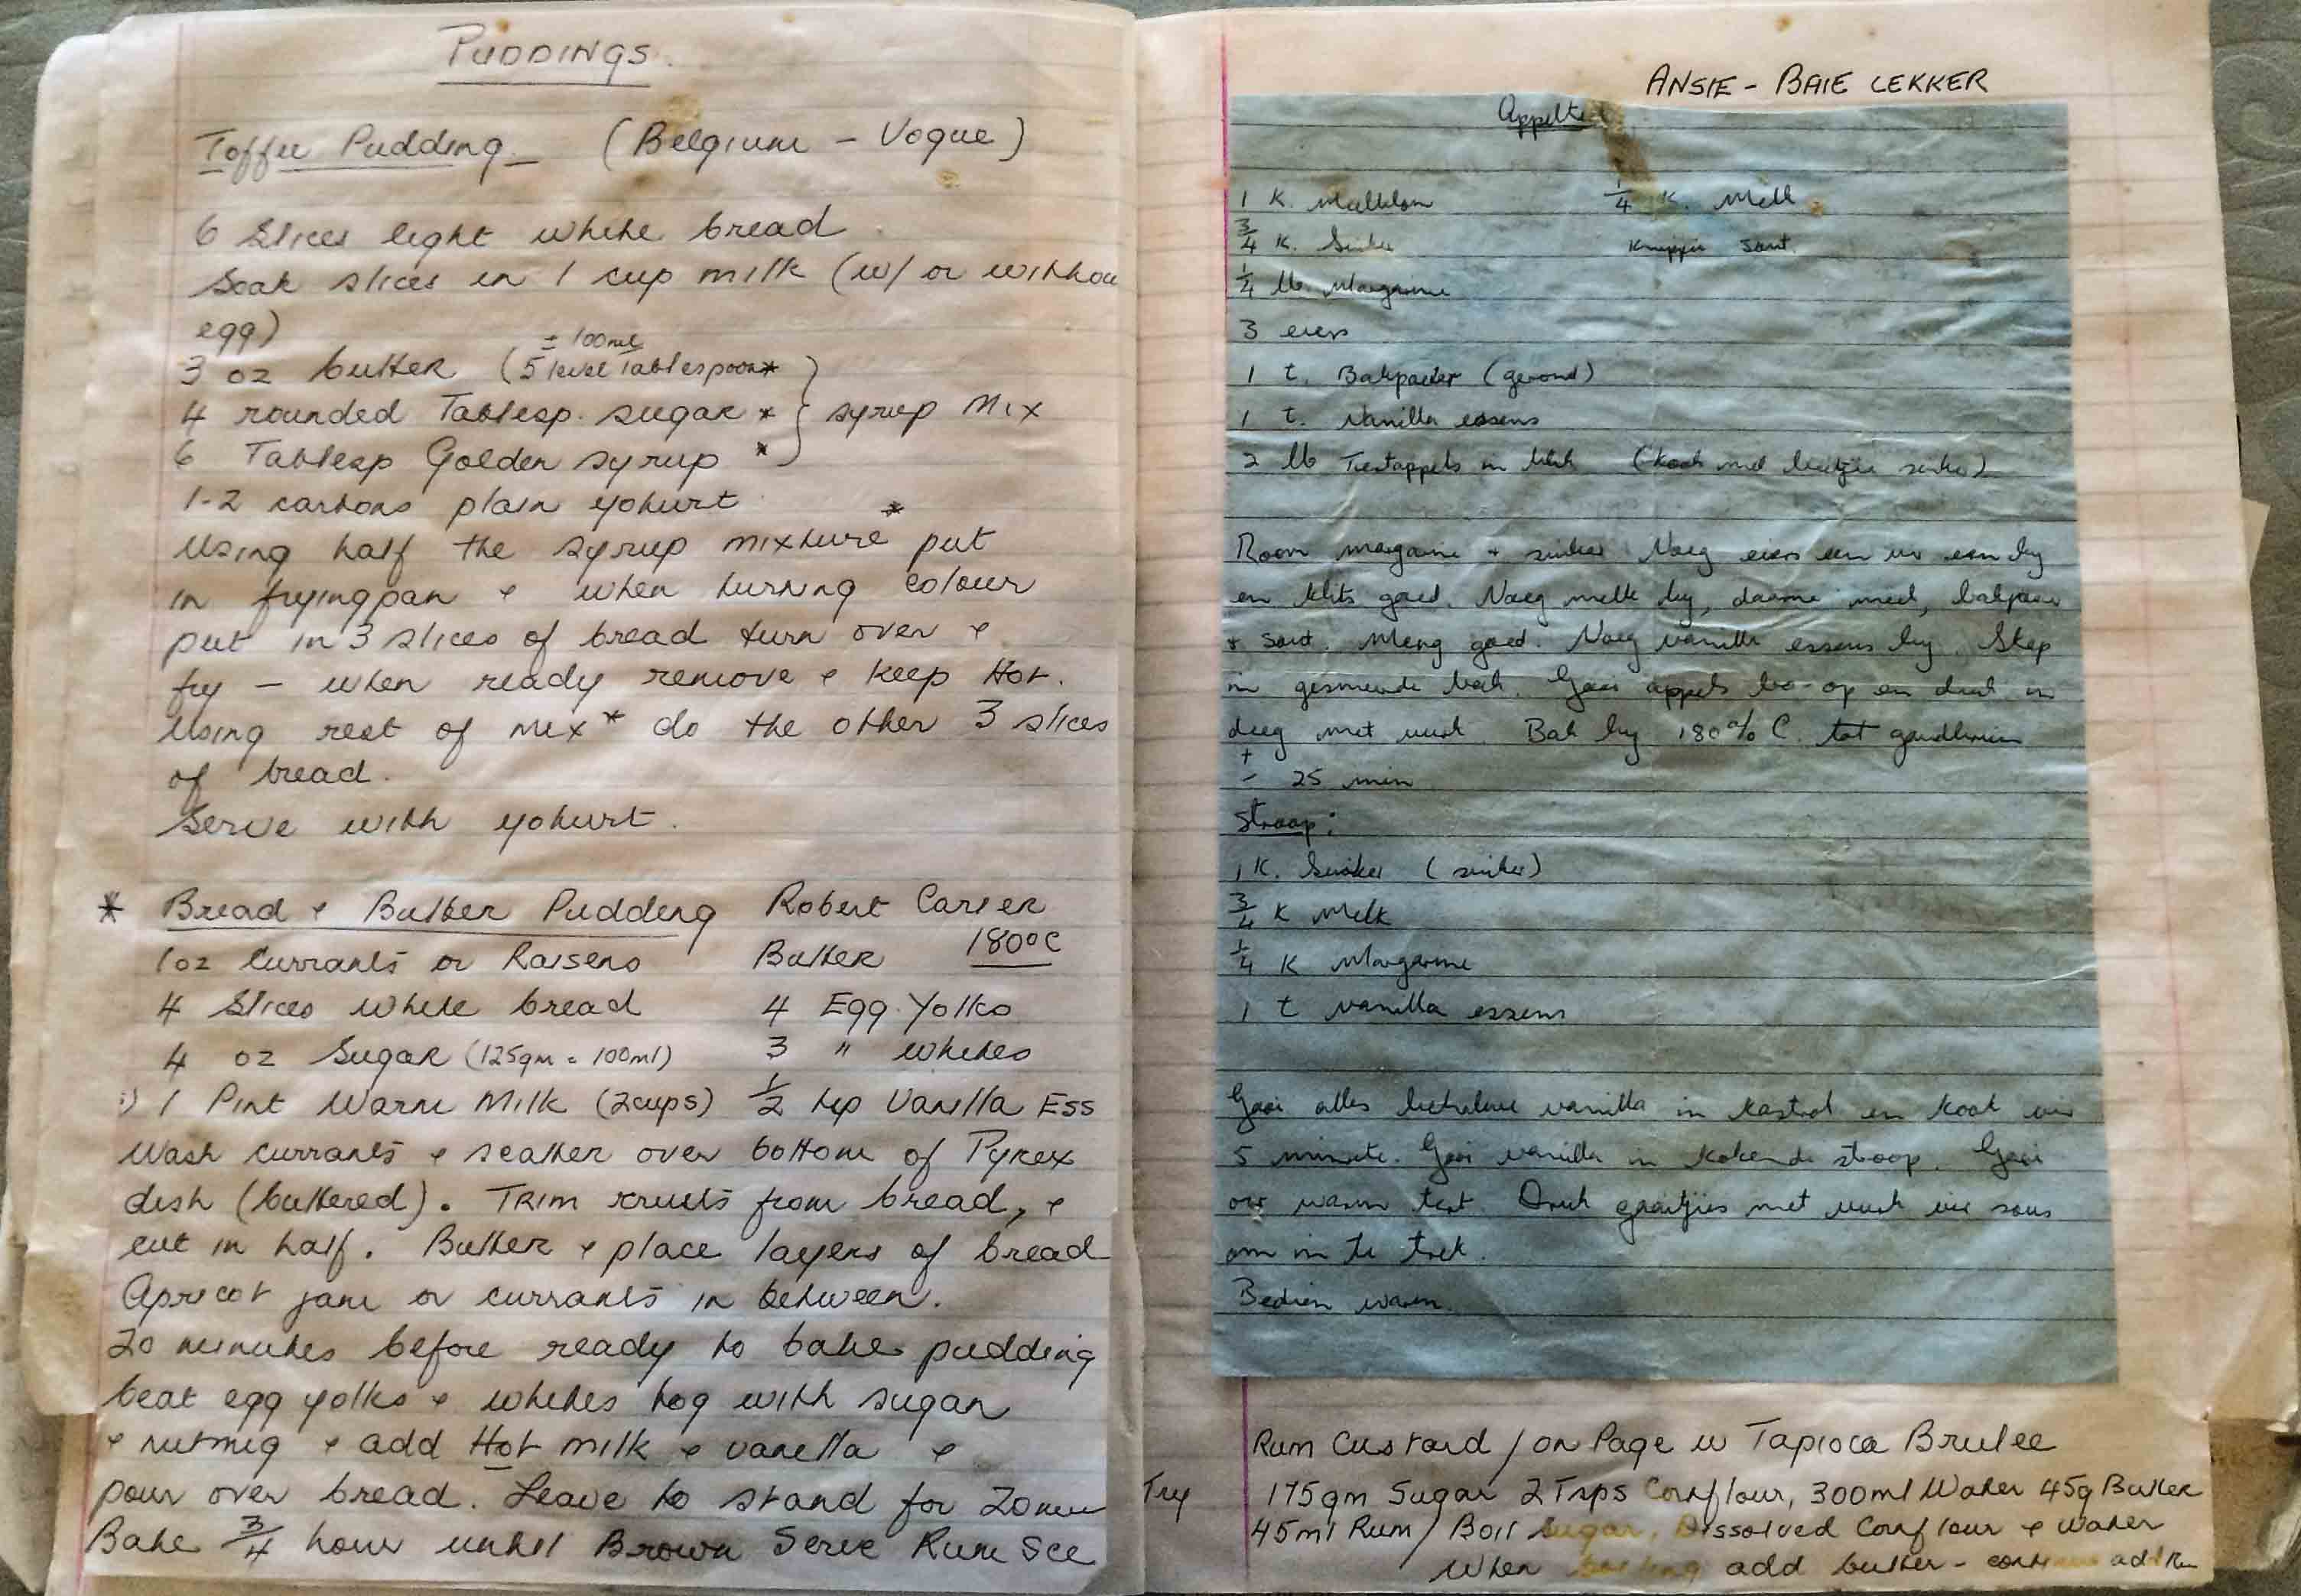 PUDDINGS.
Toffee Pudding (Belgium - Vogue)
6 slices light white bread
Soak slices in 1 cup milk (w/ or withou
egg)
± 100ml
3 oz butter (5 level Tablespoon*
4 rounded Tablesp. sugar * } syrup mix
6 Tablesp Golden syrup *
1-2 cartons plain yohurt
Using half the syrup mixture * put
in fryingpan & when turning colour
put in 3 slices of bread turn over &
fry - when ready remove & keep Hot.
Using rest of mix* do the other 3 slices
of bread.
Serve with yohurt.
* Bread & Butter Pudding Robert Carier
1oz Currants or Raisens Butter 180°C
4 Slices white bread 4 Egg Yolks
4 oz Sugar (125gm = 100ml) 3 " whites
1 Pint Warm Milk (2cups) 1/2 tsp Vanilla Ess
Wash currants & scatter over bottom of Pyrex
dish (buttered). Trim crusts from bread, &
cut in half. Butter & place layers of bread
Apricot jam or currants in between.
20 minutes before ready to bake pudding
beat egg yolks & whites tog with sugar
& nutmeg & add Hot milk & vanella &
pour over bread. Leave to stand for 20min
Bake 3/4 hour until Brown Serve Rum Sce
ANSIE - BAIE LEKKER
Appelt
1 K. Meelblom 1/4 K. Melk
3/4 K. Suiker Knippie sout.
1/4 lb. Margarine
3 eiers
1 t. Bakpoeier (gerond)
1 t. Vanilla essens
2 lb Tertappels in blik (kook met bietjie suiker)
Room margarine + suiker Voeg eiers een vir een by
en klits goed. Voeg melk by, daarna meel, bakpoeier
+ sout. Meng goed. Voeg vanilla essens by. Skep
in gesmeerde bak. Gooi appels bo-op en druk in
deeg met vurk. Bak by 180% C. tot goudbruin
± 25 min
Stroop:
1 K. Suiker (suiker)
3/4 K Melk
1/4 K Margarine
1 t vanilla essens
Gooi alles behalwe vanilla in kastrol en kook vir
5 minute. Gooi vanilla in kokende stroop. Gooi
oor warm tert. Druk gaatjies met vurk vir sous
om in te trek.
Bedien warm.
Rum Custard / on Page w Tapioca Brulee
Try 175gm Sugar 2 Tsps Cornflour, 300ml Water 45g Butter
45ml Rum / Boil Sugar, Dissolved Cornflour & water
When boiling add butter - add Rum